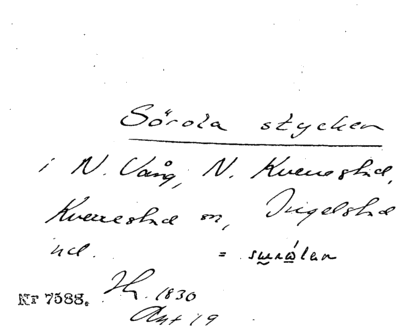 Sörola stycken
i N. Vång, N. Kverrestad,
Kverrestad sn, Ingelstad
hd. = surålan
Nr 7588. Hh. 1830
Akt 19